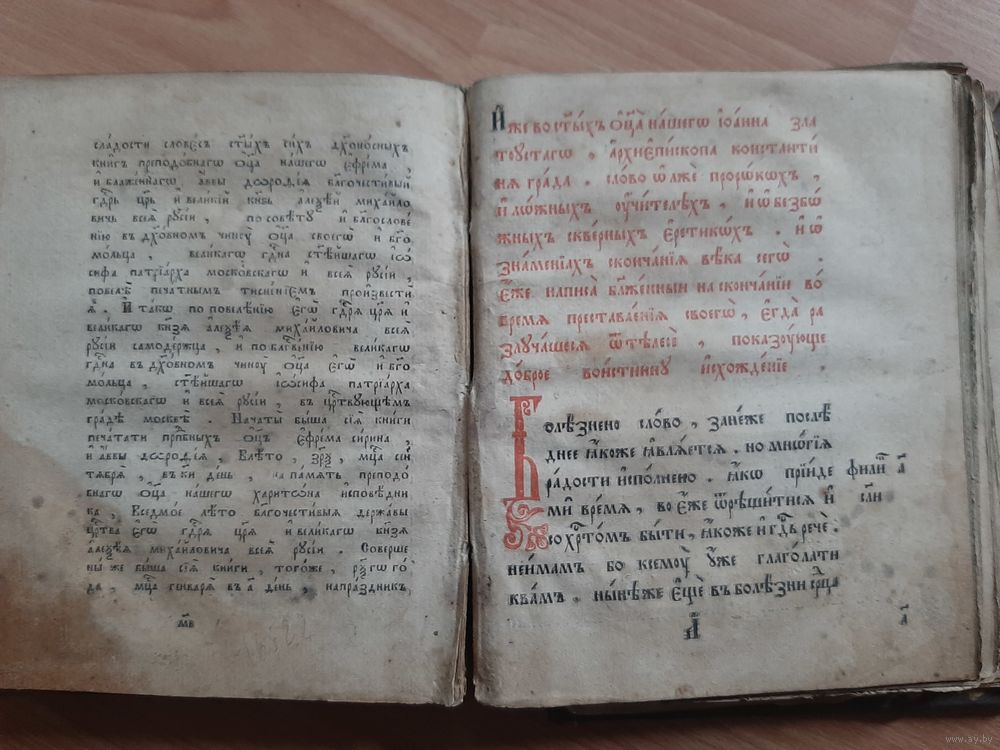 сладости словесъ ст҃ыхъ сихъ дх҃оносныхъ
книгъ преподобнагѡ ѻц҃а нашегѡ ефрема
и блаженнагѡ аввы дороѳеа бл҃гочестивый
гд҃рь цр҃ь и великїй кн҃зь алеѯїй михайло
вичь всеѧ рꙋсїи , по совѣтꙋ и бл҃гослове
нїю въ дх҃овномъ чинꙋ ѻц҃а своегѡ и бг҃о
мольца , великагѡ гд҃на ст҃ѣйшагѡ їѡ
сифа патрїарха московскагѡ и всеѧ рꙋсїи ,
повелѣ печатнымъ тисненїемъ произвести
ѧ . И такѡ по повелѣнїю егѡ гд҃рѧ цр҃ѧ и
великагѡ кн҃зѧ алеѯїѧ михайловича всеѧ
рꙋсїи самодержца , и по бл҃гвенїю великагѡ
гд҃на въ дх҃овномъ чинꙋ ѻц҃а егѡ и бг҃о
мольца , ст҃ѣйшагѡ їѡсифа патрїарха
московскагѡ и всеѧ рꙋсїи , въ цр҃твꙋющемъ
градѣ москвѣ . Начаты быша сїѧ книги
печатати прпⷣбныхъ ѻц҃ъ ефрема сирина ,
и аввы дороѳеа , В лѣто , ҂зрѯ , мцⷭ҇а сеп
тѧврѧ , въ ки день , на памѧть преподо
бнагѡ ѻц҃а нашегѡ харитона исповѣдни
ка , В седмое лѣто благочестивыѧ державы
цр҃тва егѡ гд҃рѧ цр҃ѧ и великагѡ кн҃зѧ
алеѯїѧ михайловича всеѧ рꙋсїи . Соверше
ны же быша сїѧ книги , тогоже , рѯгѡ го
да , мцⷭ҇а генварѧ въ а҃ день , на праздникъ
м҃в
Иже во ст҃ыхъ ѻц҃а нашегѡ їѡанна зла
тоꙋстагѡ , архїепископа константи
нѧ града . слово ѡ лже пророкѡхъ ,
и ложныхъ оучителехъ , и ѡ безбо
жныхъ скверныхъ еретикѡхъ . и ѡ
знаменїихъ скончанїѧ вѣка сегѡ .
Еже написа блаженныи на скончанїи во
времѧ преставленїѧ своегѡ , егда ра
злꙋчашесѧ ѿ телесе , показꙋюще
доброе воистиннꙋ исхожденїе .
Болѣзнено слово , занеже послѣ
днее ꙗкоже ꙗвлѧетсѧ . но многїѧ
радости исполнено . ꙗкѡ прїиде
ми времѧ , во еже ѿрѣшитисѧ и
со хр҃томъ быти , ꙗкоже и гд҃ь рече .
не имамъ бо ксемꙋ оуже глаголати
квамъ . нынѣ же еще въ болѣзни срⷣца
филип а҃
а҃
а҃
www.ay.by